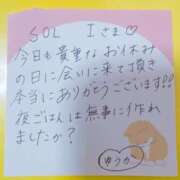 SOL Iさま♡
今日も貴重なお休み
の日に会いに来て頂き
本当にありがとうございます!!
夜ごはんは無事に作れ
ましたか?
ゆうか